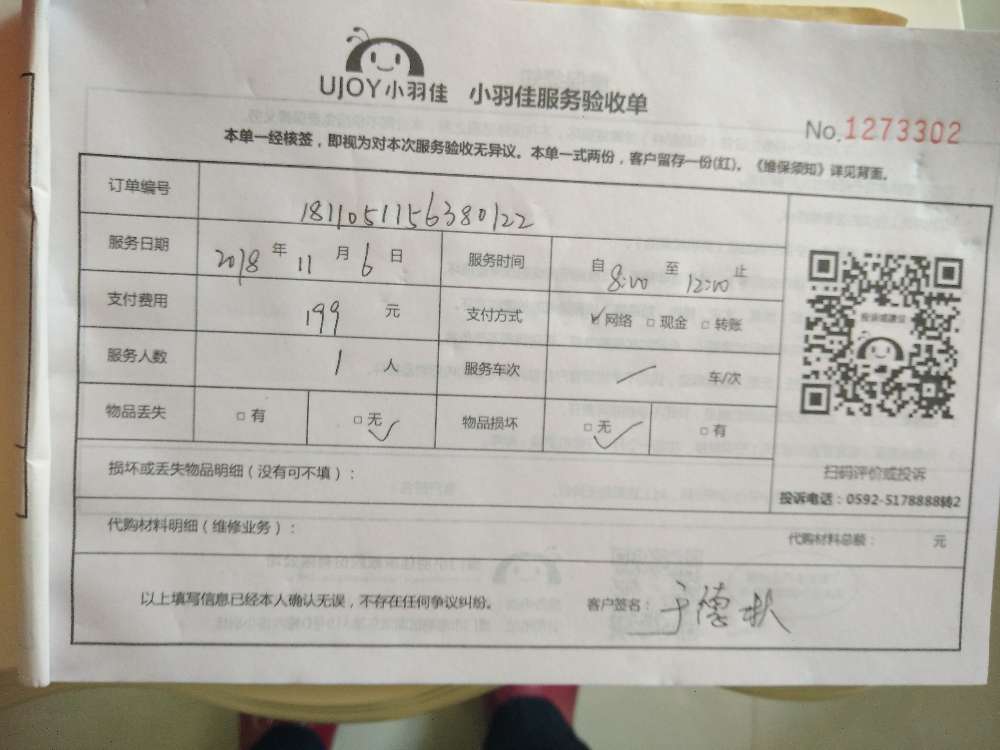 UJOY小羽佳 小羽佳服务验收单
No.1273302
本单一经核签，即视为对本次服务验收无异议。本单一式两份，客户留存一份(红)。《维保须知》详见背面。
订单编号 1811051156380122
服务日期 2018年11月6日 服务时间 自8:00至12:00止
支付费用 199元 支付方式 ☑网络 □现金 □转账
服务人数 1人 服务车次 / 车/次
物品丢失 □有 □无✓ 物品损坏 □无✓ □有
投诉或建议
扫码评价或投诉
投诉电话：0592-5178888转2
损坏或丢失物品明细（没有可不填）：
代购材料明细（维修业务）：
代购材料总额： 元
以上填写信息已经本人确认无误，不存在任何争议纠纷。 客户签名：于德